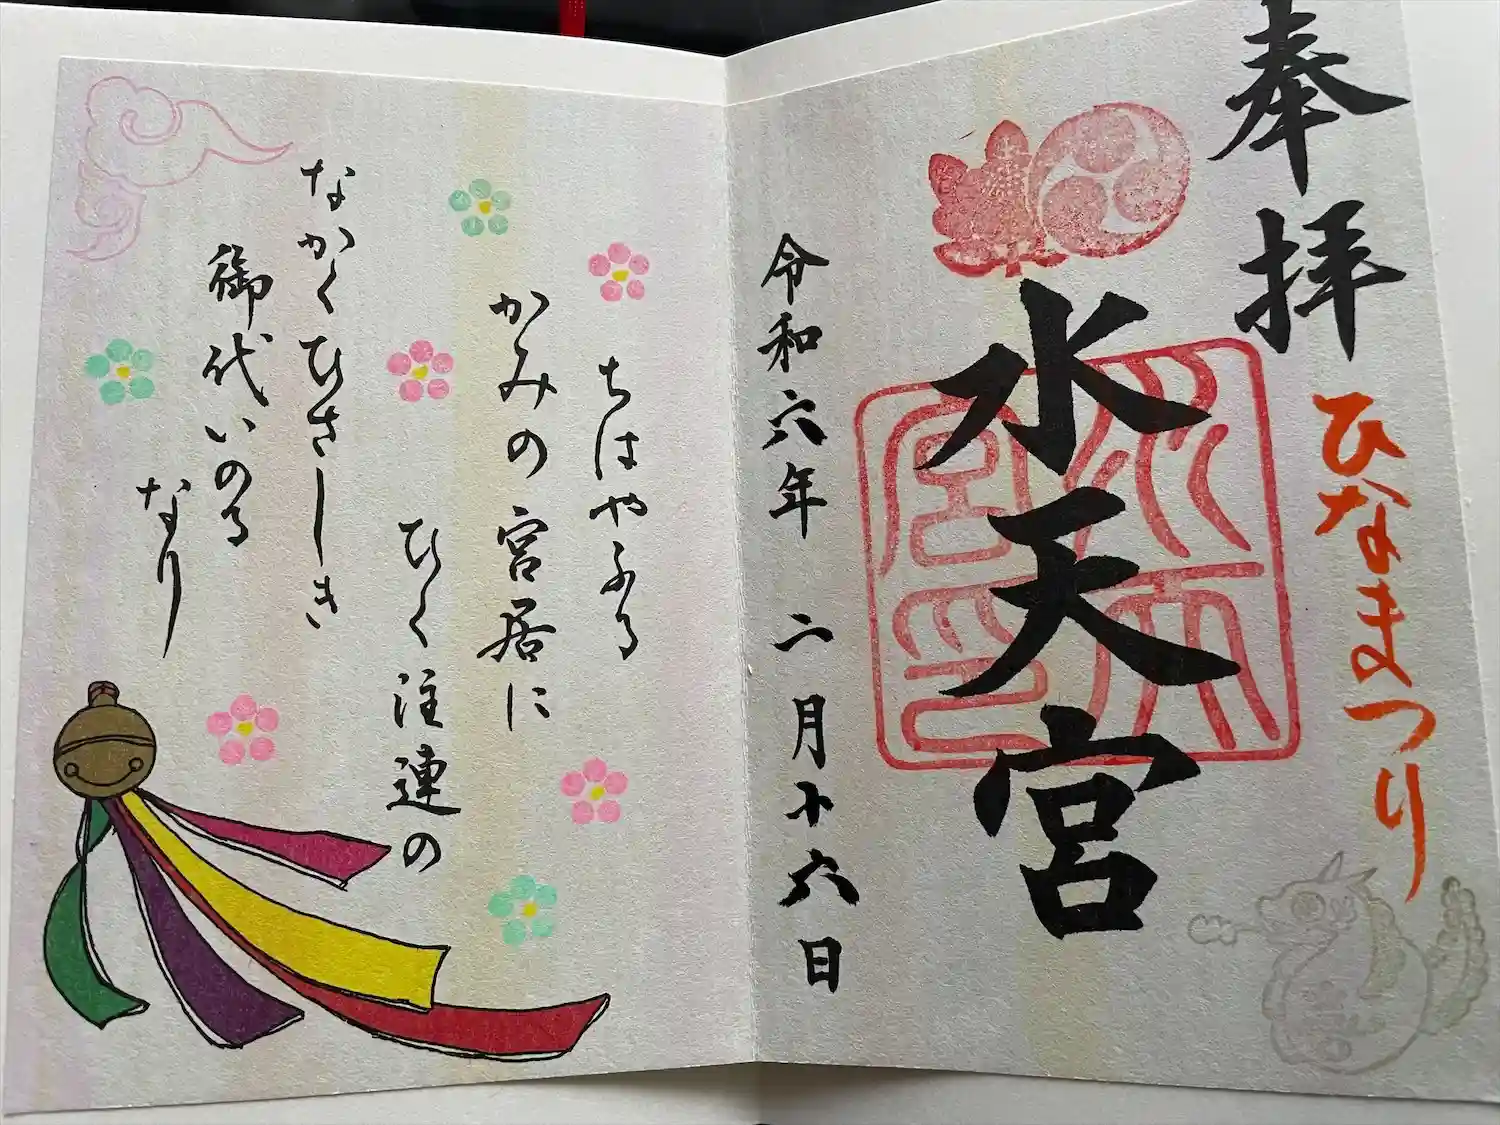 奉拝
ひなまつり
水天宮
令和六年 二月十六日
ちはやふる
かみの宮居に
ひく注連の
なかくひさしき
御代いのる
なり